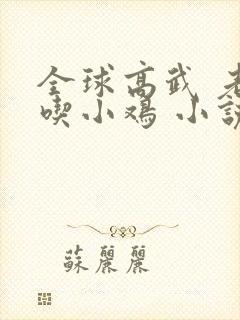 全球高武 老
喫小鸡 小說
蘇麗麗